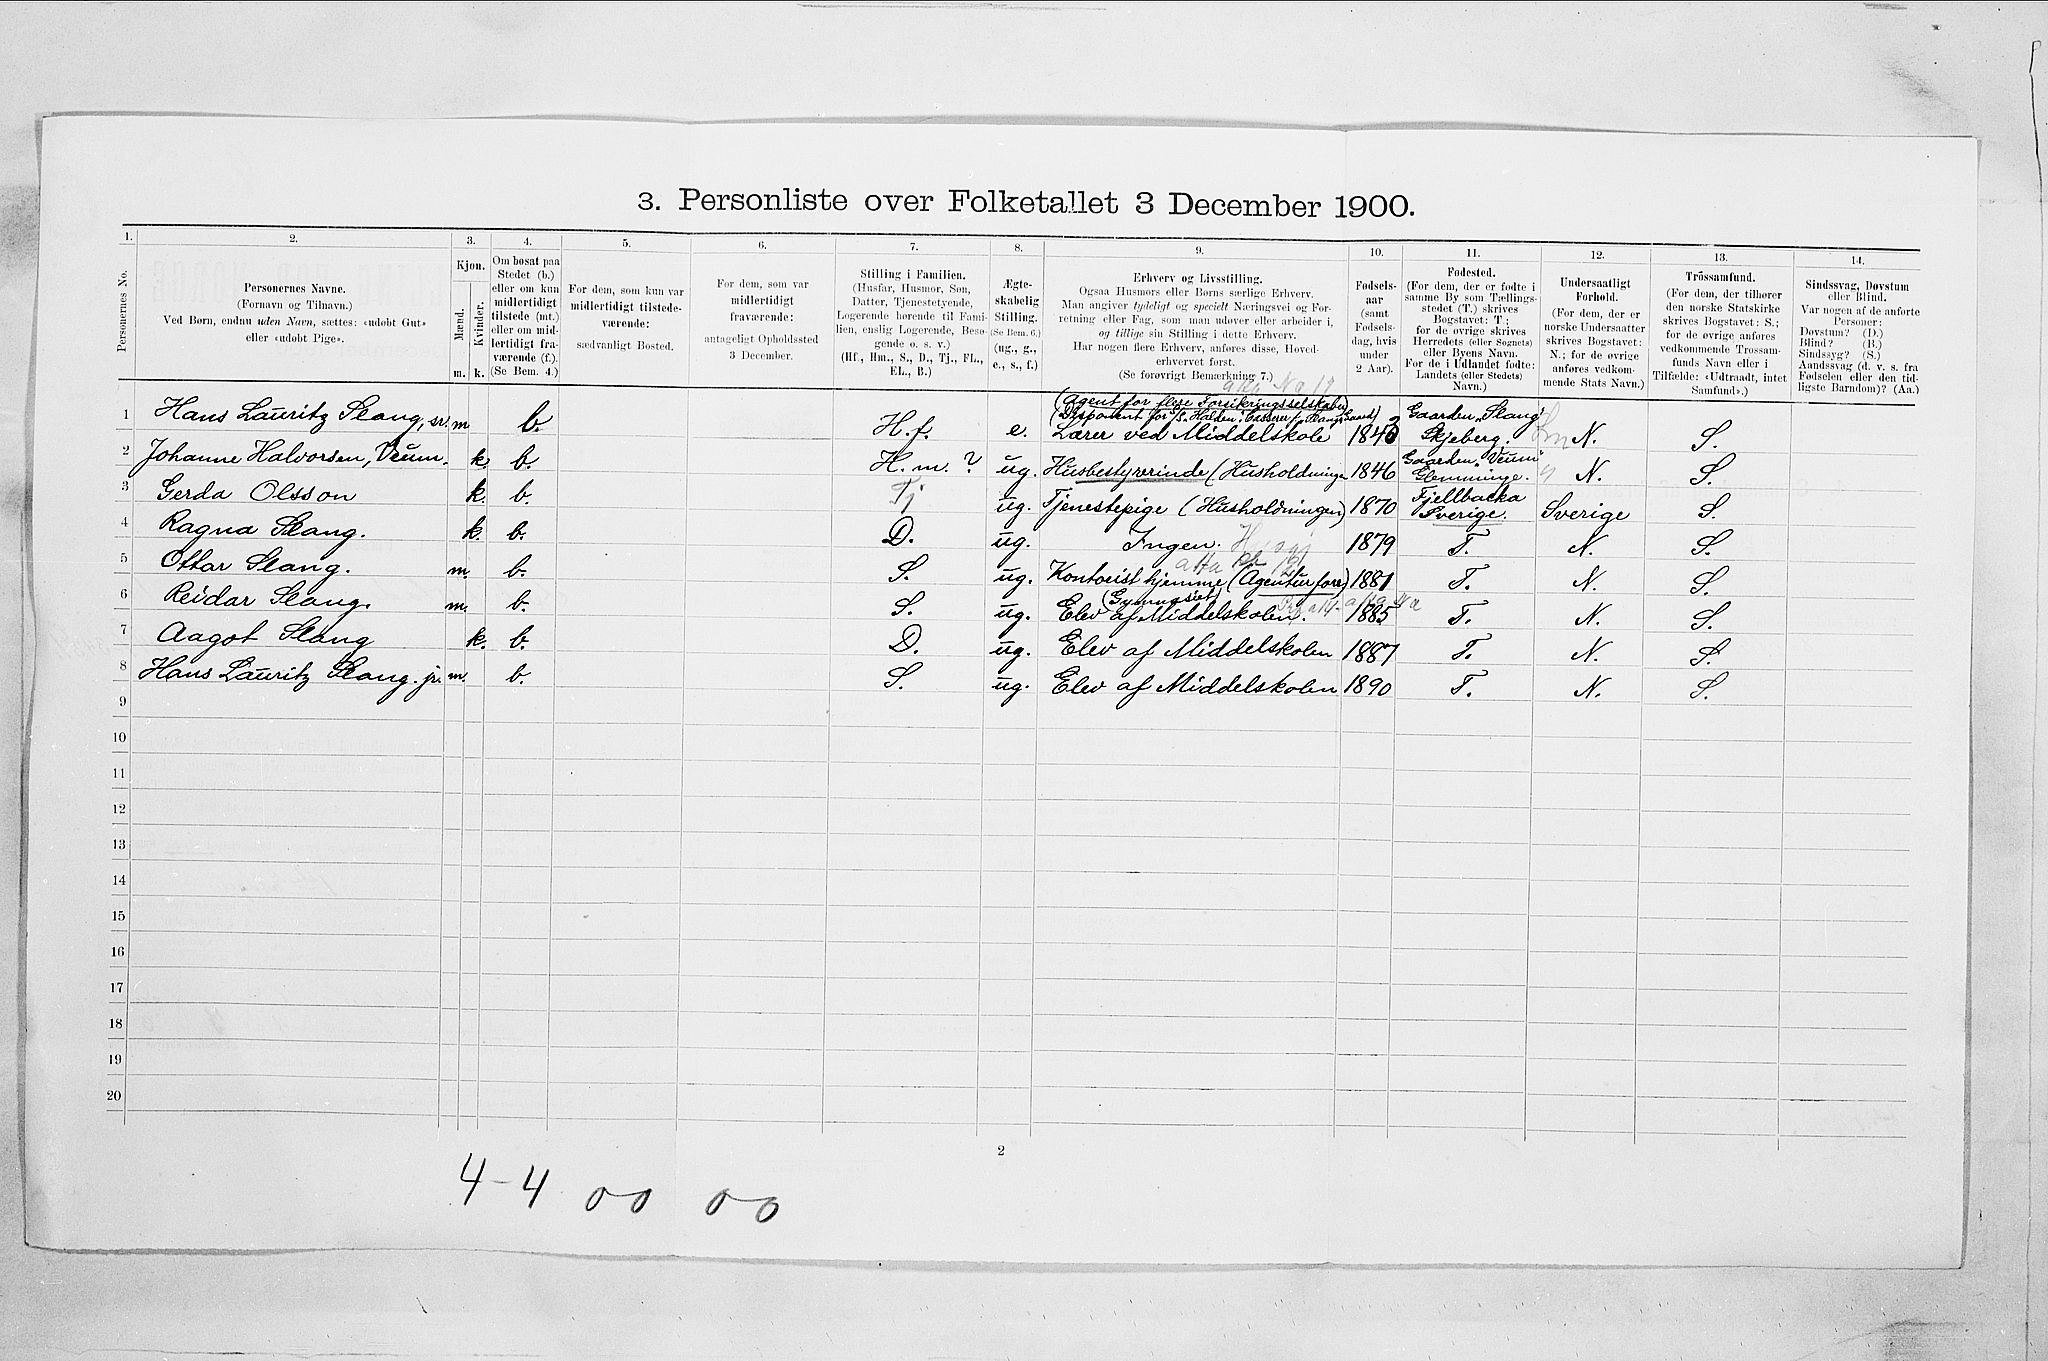 3. Personliste over Folketallet 3 December 1900.
1. 2. 3. 4. 5. 6. 7. 8. 9. 10. 11. 12. 13. 14.
Personernes No.
Personernes Navne.
(Fornavn og Tilnavn.)
Ved Børn, endnu uden Navn, sættes: «udøbt Gut»
eller «udøbt Pige».
Kjøn.
Mænd.
Kvinder.
m. k.
Om bosat paa
Stedet (b.)
eller om kun
midlertidigt
tilstede (mt.)
eller om mid-
lertidigt fra-
værende (f.).
(Se Bem. 4.)
For dem, som kun var
midlertidigt tilstede-
værende:
sædvanligt Bosted.
For dem, som var
midlertidigt
fraværende:
antageligt Opholdssted
3 December.
Stilling i Familien.
(Husfar, Husmor, Søn,
Datter, Tjenestetyende,
Logerende hørende til Fami-
lien, enslig Logerende, Besø-
gende o. s. v.)
(Hf., Hm., S., D., Tj., FL.,
EL., B.)
Ægte-
skabelig
Stilling.
(Se Bem. 6.)
(ug., g.,
e., s., f.)
Erhverv og Livsstilling.
Ogsaa Husmors eller Børns særlige Erhverv.
Man angiver tydeligt og specielt Næringsvei og For-
retning eller Fag, som man udøver eller arbeider i,
og tillige sin Stilling i dette Erhverv.
Har nogen flere Erhverv, anføres disse, Hoved-
erhvervet først.
(Se forøvrigt Bemærkning 7.)
Fødsels-
aar
(samt
Fødsels-
dag, hvis
under
2 Aar).
Fødested.
(For dem, der er fødte i
samme By som Tællings-
stedet (T.) skrives
Bogstavet: T.;
for de øvrige skrives
Herredets (eller Sognets)
eller Byens Navn.
For de i Udlandet fødte:
Landets (eller Stedets)
Navn.)
Undersaatligt
Forhold.
(For dem, der er
norske Undersaatter
skrives Bogstavet:
N.; for de øvrige
anføres vedkom-
mende Stats Navn.)
Trossamfund.
(For dem, der tilhører
den norske Statskirke
skrives Bogstavet: S.;
for de øvrige anføres
vedkommende Trossam-
funds Navn eller i
Tilfælde: «Udtraadt, intet
Samfund».)
Sindssvag, Døvstum
eller Blind.
Var nogen af de anførte
Personer:
Døvstum? (D.)
Blind? (B.)
Sindssyg? (S.)
Aandssvag (d. v. s. fra
Fødselen eller den tid-
ligste Barndom)? (Aa.)
(Agent for flere Forsikringsselskaber
(Disponent for "Halden". Casserer
1 Hans Lauritz Slang, sr. m b. H.f. e. Lærer ved Middelskole 184 Gaarden "Slang" Skjeberg. N. S.
2 Johanne Halvorsen, Veum. k. b. H.m.? ug. Husbestyrerinde (Husholdningen 1846 Gaarden "Veum" Glemminge. N. S.
3 Gerda Olsson k. b. Tj ug. Tjenestepige (Husholdningen) 1870 Fjellbacka Sverige. Sverige S.
4 Ragna Slang. k. b. D. ug. Ingen. 1879 T. N. S.
5 Ottar Slang. m. b. S. ug. Kontorist hjemme (Agenturforr) 1881 T. N. S.
6 Reidar Slang. m. b. S. ug. (Gymnasiet) Elev af Middelskolen. 1885 T. N. S.
7 Aagot Slang k. b. D. ug. Elev af Middelskolen 1887 T. N. S.
8 Hans Lauritz Slang. jr. m. b. S. ug. Elev af Middelskolen 1890 T. N. S.
9
10
11
12
13
14
15
16
17
18
19
20
2
4-4 00 00